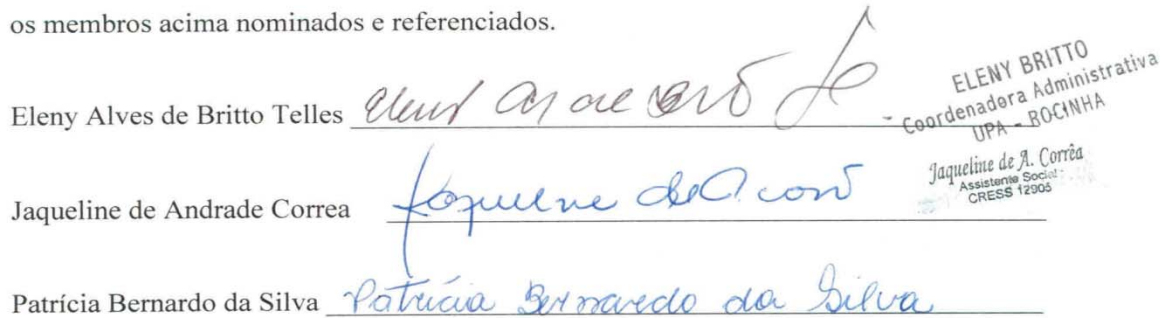 os membros acima nominados e referenciados.
Eleny Alves de Britto Telles
ELENY BRITTO
Coordenadora Administrativa
UPA - ROCINHA
Jaqueline de Andrade Correa Jaqueline de A. Corrêa
Assistente Social
CRESS 12905
Patrícia Bernardo da Silva Patrícia Bernardo da Silva